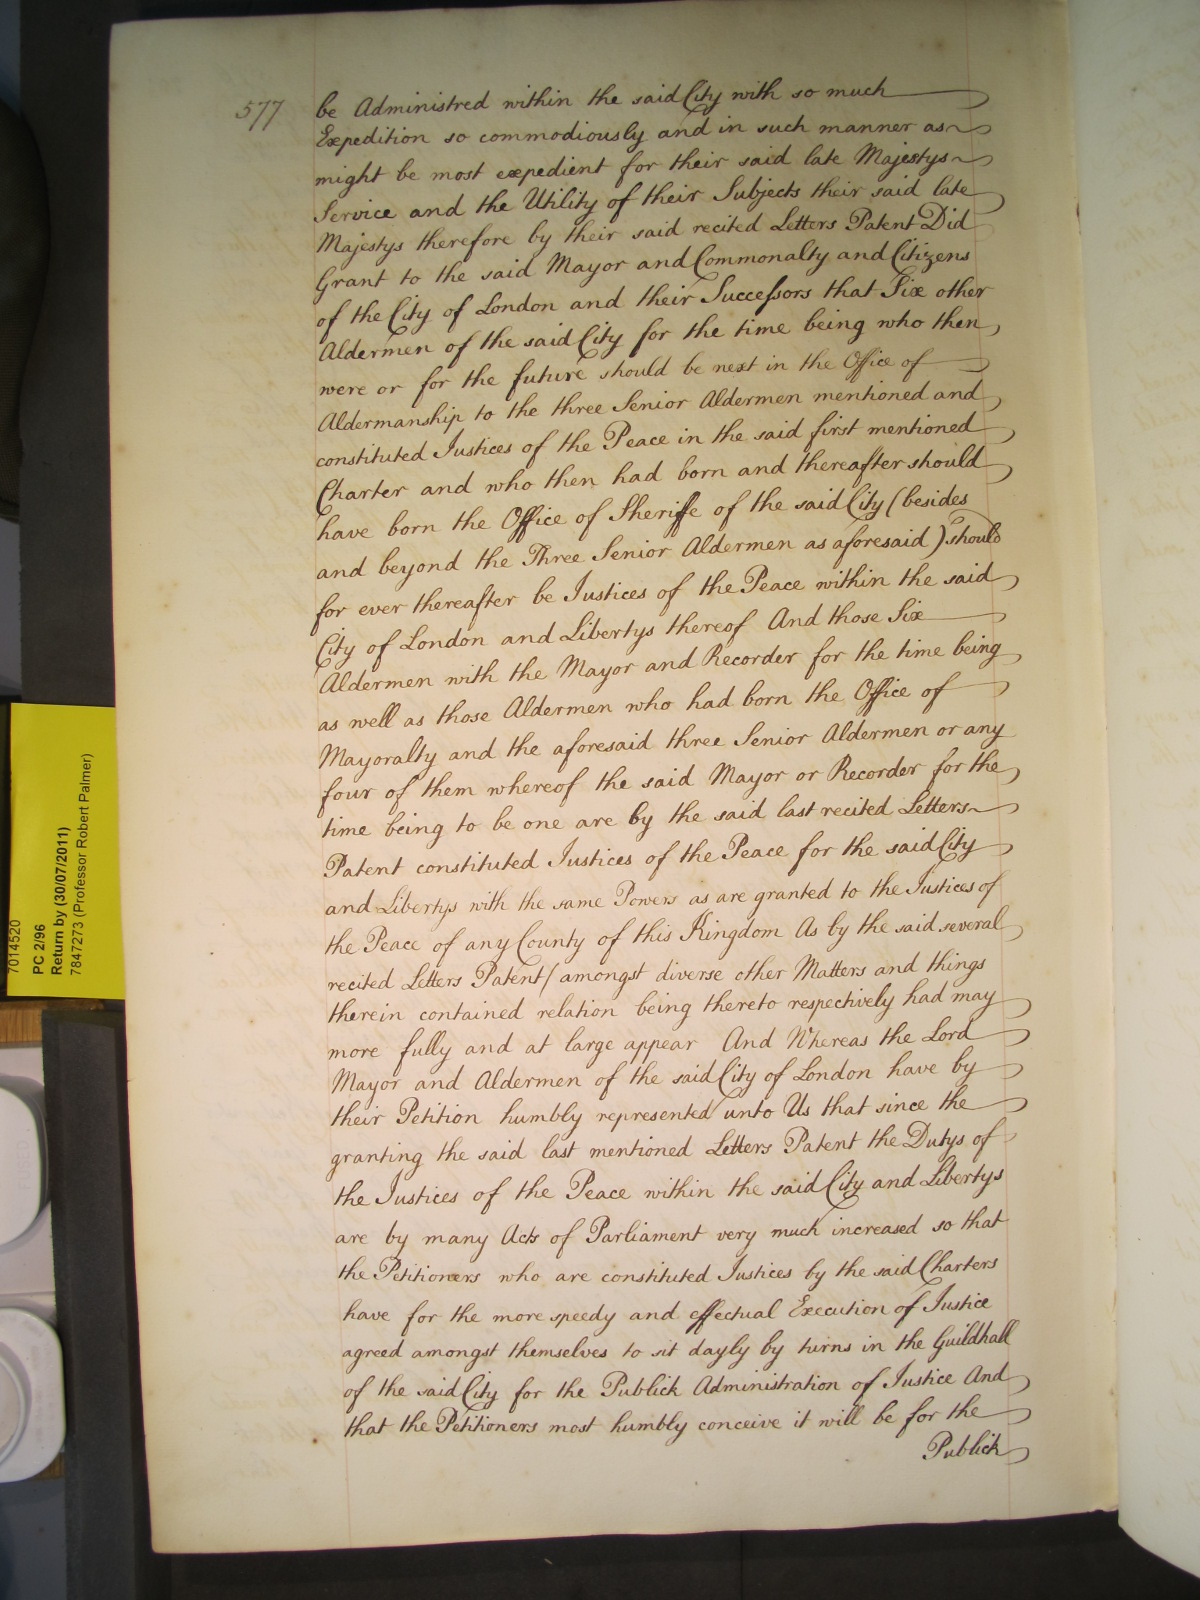 577
be Administred within the said City with so much
Expedition so commodiously and in such manner as
might be most expedient for their said late Majestys
Service and the Utility of their Subjects their said late
Majestys therefore by their said recited Letters Patent Did
Grant to the said Mayor and Commonalty and Citizens
of the City of London and their Successors that Six other
Aldermen of the said City for the time being who then
were or for the future should be next in the Office of
Aldermanship to the three Senior Aldermen mentioned and
constituted Justices of the Peace in the said first mentioned
Charter and who then had born and thereafter should
have born the Office of Sheriffe of the said City (besides
and beyond the Three Senior Aldermen as aforesaid) should
for ever thereafter be Justices of the Peace within the said
City of London and Libertys thereof And those Six
Aldermen with the Mayor and Recorder for the time being
as well as those Aldermen who had born the Office of
Mayoralty and the aforesaid three Senior Aldermen or any
four of them whereof the said Mayor or Recorder for the
time being to be one are by the said last recited Letters
Patent constituted Justices of the Peace for the said City
and Libertys with the same Powers as are granted to the Justices of
the Peace of any County of this Kingdom As by the said several
recited Letters Patent (amongst diverse other Matters and things
therein contained relation being thereto respectively had may
more fully and at large appear And Whereas the Lord
Mayor and Aldermen of the said City of London have by
their Petition humbly represented unto Us that since the
granting the said last mentioned Letters Patent the Dutys of
the Justices of the Peace within the said City and Libertys
are by many Acts of Parliament very much increased so that
the Petitioners who are constituted Justices by the said Charters
have for the more speedy and effectual Execution of Justice
agreed amongst themselves to sit dayly by turns in the Guildhall
of the said City for the Publick Administration of Justice And
that the Petitioners most humbly conceive it will be for the
Publick
7014520
PC 2/96
Return by (30/07/2011)
7847273 (Professor Robert Palmer)